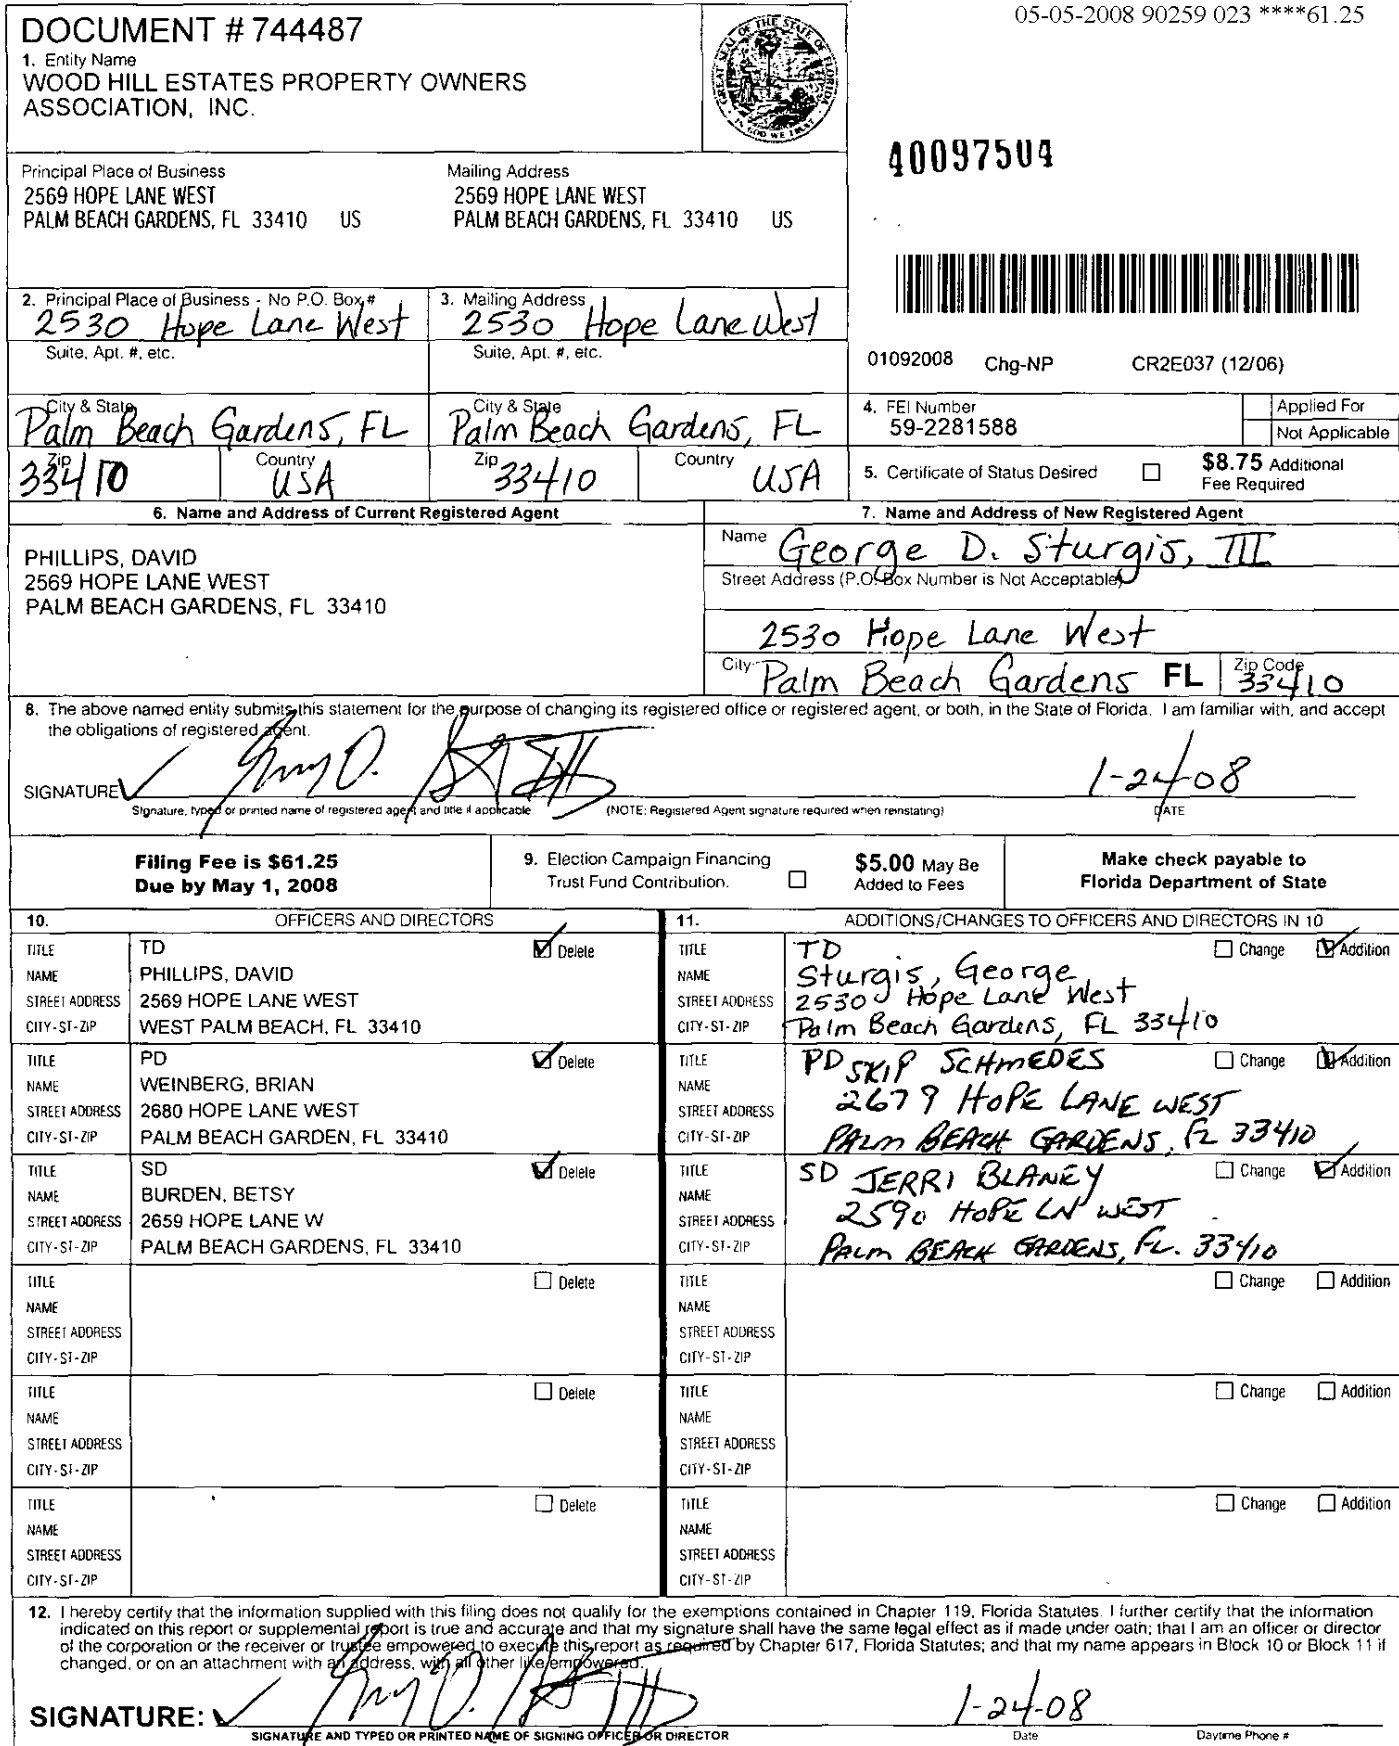 05-05-2008 90259 023 ****61.25
DOCUMENT # 744487
1. Entity Name
WOOD HILL ESTATES PROPERTY OWNERS
ASSOCIATION, INC.
GREAT SEAL OF THE STATE OF FLORIDA
IN GOD WE TRUST
40097504
Principal Place of Business
2569 HOPE LANE WEST
PALM BEACH GARDENS, FL 33410 US
Mailing Address
2569 HOPE LANE WEST
PALM BEACH GARDENS, FL 33410 US
2. Principal Place of Business - No P.O. Box #
2530 Hope Lane West
3. Mailing Address
2530 Hope Lane West
Suite, Apt. #, etc.
Suite, Apt. #, etc.
01092008 Chg-NP CR2E037 (12/06)
City & State
Palm Beach Gardens, FL
City & State
Palm Beach Gardens, FL
4. FEI Number
59-2281588
Applied For
Not Applicable
Zip
33410
Country
USA
Zip
33410
Country
USA
5. Certificate of Status Desired
$8.75 Additional
Fee Required
6. Name and Address of Current Registered Agent
PHILLIPS, DAVID
2569 HOPE LANE WEST
PALM BEACH GARDENS, FL 33410
7. Name and Address of New Registered Agent
Name George D. Sturgis, III
Street Address (P.O. Box Number is Not Acceptable)
2530 Hope Lane West
City Palm Beach Gardens FL Zip Code 33410
8. The above named entity submits this statement for the purpose of changing its registered office or registered agent, or both, in the State of Florida. I am familiar with, and accept
the obligations of registered agent.
SIGNATURE
1-24-08
Signature, typed or printed name of registered agent and title if applicable
(NOTE: Registered Agent signature required when reinstating)
DATE
Filing Fee is $61.25
Due by May 1, 2008
9. Election Campaign Financing
Trust Fund Contribution.
$5.00 May Be
Added to Fees
Make check payable to
Florida Department of State
10. OFFICERS AND DIRECTORS
11. ADDITIONS/CHANGES TO OFFICERS AND DIRECTORS IN 10
TITLE TD Delete
NAME PHILLIPS, DAVID
STREET ADDRESS 2569 HOPE LANE WEST
CITY-ST-ZIP WEST PALM BEACH, FL 33410
TITLE TD Change Addition
NAME Sturgis, George
STREET ADDRESS 2530 Hope Lane West
CITY-ST-ZIP Palm Beach Gardens, FL 33410
TITLE PD Delete
NAME WEINBERG, BRIAN
STREET ADDRESS 2680 HOPE LANE WEST
CITY-ST-ZIP PALM BEACH GARDEN, FL 33410
TITLE PD SKIP SCHMEDES Change Addition
NAME
STREET ADDRESS 2679 HOPE LANE WEST
CITY-ST-ZIP PALM BEACH GARDENS, FL 33410
TITLE SD Delete
NAME BURDEN, BETSY
STREET ADDRESS 2659 HOPE LANE W
CITY-ST-ZIP PALM BEACH GARDENS, FL 33410
TITLE SD JERRI BLANEY Change Addition
NAME
STREET ADDRESS 2590 HOPE LN WEST
CITY-ST-ZIP PALM BEACH GARDENS, FL. 33410
TITLE Delete
NAME
STREET ADDRESS
CITY-ST-ZIP
TITLE Change Addition
NAME
STREET ADDRESS
CITY-ST-ZIP
TITLE Delete
NAME
STREET ADDRESS
CITY-ST-ZIP
TITLE Change Addition
NAME
STREET ADDRESS
CITY-ST-ZIP
TITLE Delete
NAME
STREET ADDRESS
CITY-ST-ZIP
TITLE Change Addition
NAME
STREET ADDRESS
CITY-ST-ZIP
12. I hereby certify that the information supplied with this filing does not qualify for the exemptions contained in Chapter 119, Florida Statutes. I further certify that the information
indicated on this report or supplemental report is true and accurate and that my signature shall have the same legal effect as if made under oath; that I am an officer or director
of the corporation or the receiver or trustee empowered to execute this report as required by Chapter 617, Florida Statutes; and that my name appears in Block 10 or Block 11 if
changed, or on an attachment with an address, with all other like empowered.
SIGNATURE:
1-24-08
SIGNATURE AND TYPED OR PRINTED NAME OF SIGNING OFFICER OR DIRECTOR
Date
Daytime Phone #